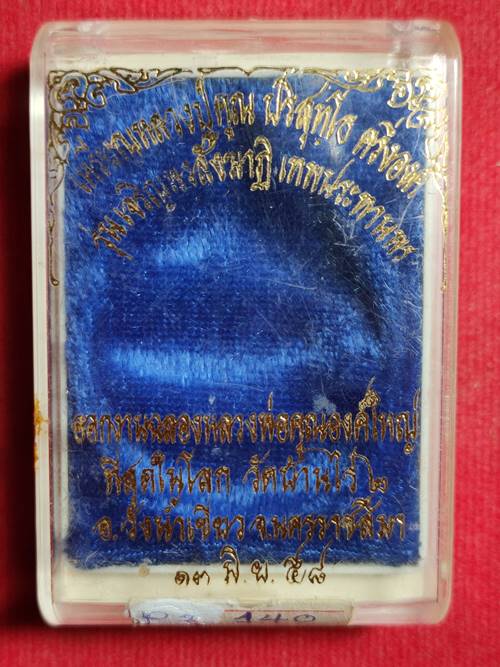 เหรียญหลวงปู่คูณ ปริสุทฺโธ ครึ่งองค์
รุ่น เจริญพรสัมฤทธิ์ เทพประทานพร
ฉลองหลวงพ่อคูณองค์ใหญ่
ที่สุดในโลก วัดบ้านไร่ ๒
อ.วังน้ำเขียว จ.นครราชสีมา
๑๓ ๕๘
140